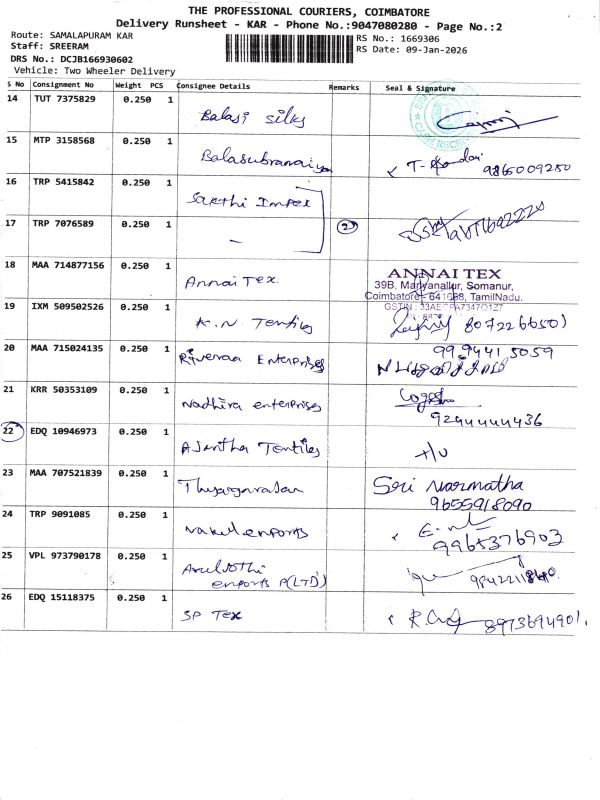 THE PROFESSIONAL COURIERS, COIMBATORE
Delivery Runsheet - KAR - Phone No.:9047080280 - Page No.:2
Route: SAMALAPURAM KAR
RS No.: 1669306
Staff: SREERAM
RS Date: 09-Jan-2026
DRS No.: DCJB166930602
Vehicle: Two Wheeler Delivery
S No Consignment No Weight PCS Consignee Details Remarks Seal & Signature
14 TUT 7375829 0.250 1 Balaji Silks
15 MTP 3158568 0.250 1 Balasubramaniyan
T- 9865009250
16 TRP 5415842 0.250 1 Sakthi Impex
17 TRP 7076589 0.250 1 - 2
18 MAA 714877156 0.250 1 Annai Tex
ANNAI TEX
39B, Mariyanallur, Somanur,
Coimbatore - 641668, TamilNadu.
19 IXM 509502526 0.250 1 K.N. Textiles
20 MAA 715024135 0.250 1 Riveraa Enterprises
21 KRR 50353109 0.250 1 Nadhira enterprises
9244444436
22 EDQ 10946973 0.250 1 Ajantha Textiles
23 MAA 707521839 0.250 1 Thyagarajan Sri Narmatha
9655918090
24 TRP 9091085 0.250 1 Nakul exports
9965376903
25 VPL 973790178 0.250 1 Aruljothi
exports P(LTD)
26 EDQ 15118375 0.250 1 SP Tex 8973694901.